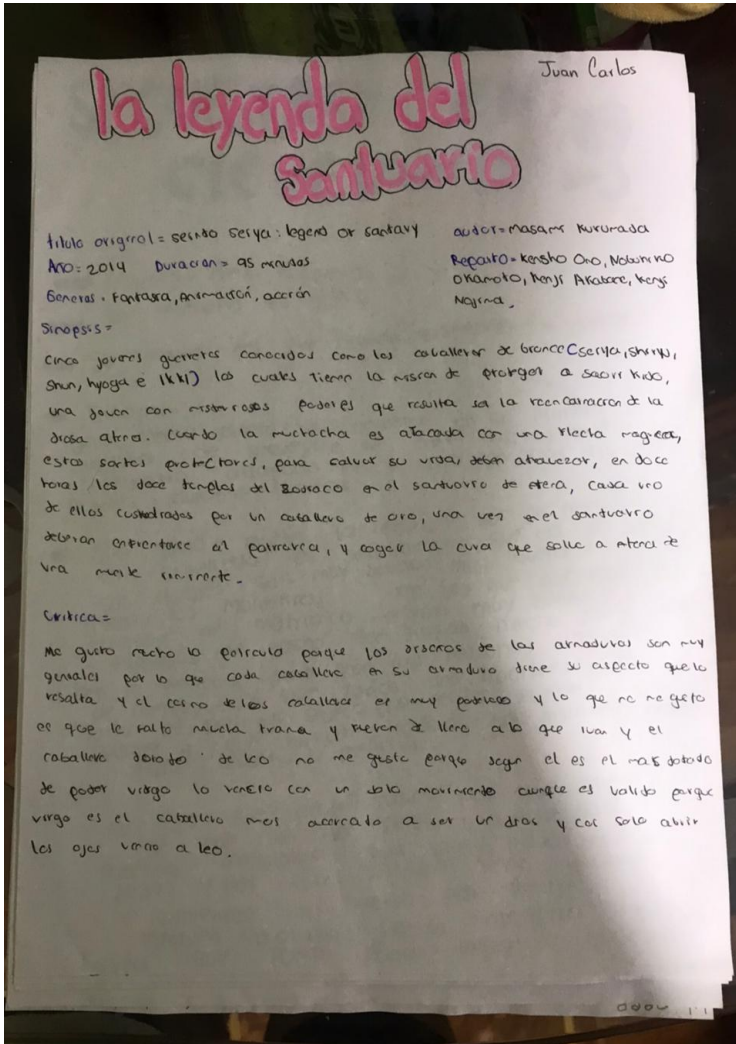 Juan Carlos
la leyenda del
Santuario
titulo original = seindo serya : legend or santavy
autor = masami Kurumada
Año = 2014 Duracion = 95 minutos
Reparto = Kensho Ono, Nobuhiko
Okamoto, Kenji Akabane, Kenji
Nojima.
Generos = Fantasia, Animación, acción
Sinopsis =
cinco jovenes guerreros conocidos como los caballeros de bronce (serya, shiryu,
Shun, hyoga e ikki) los cuales tienen la mision de proteger a saori kido,
una joven con misteriosos poderes que resulta ser la reencarnacion de la
diosa atena. cuando la muchacha es atacada con una flecha magica,
estos protectores, para salvar su vida, deben atravezar, en doce
horas los doce templos del zodiaco en el santuario de atena, cada uno
de ellos custodiados por un caballero de oro, una vez en el santuario
deberan enfrentarse al patriarca, y coger la cura que salve a atena de
una muerte inminente.
Critica =
Me gusto mucho la pelicula porque los diseños de las armaduras son muy
geniales por lo que cada caballero en su armadura tiene su aspecto que lo
resalta y el cosmo de los caballeros es muy poderoso y lo que no me gusto
es que le falto mucha trama y fueron de lleno a lo que ivan y el
caballero dorado de leo no me gusto porque segun el es el mas dotado
de poder virgo lo vencio con un solo movimiento aunque es valido porque
virgo es el caballero mas acercado a ser un dios y con solo abrir
los ojos vencio a leo.